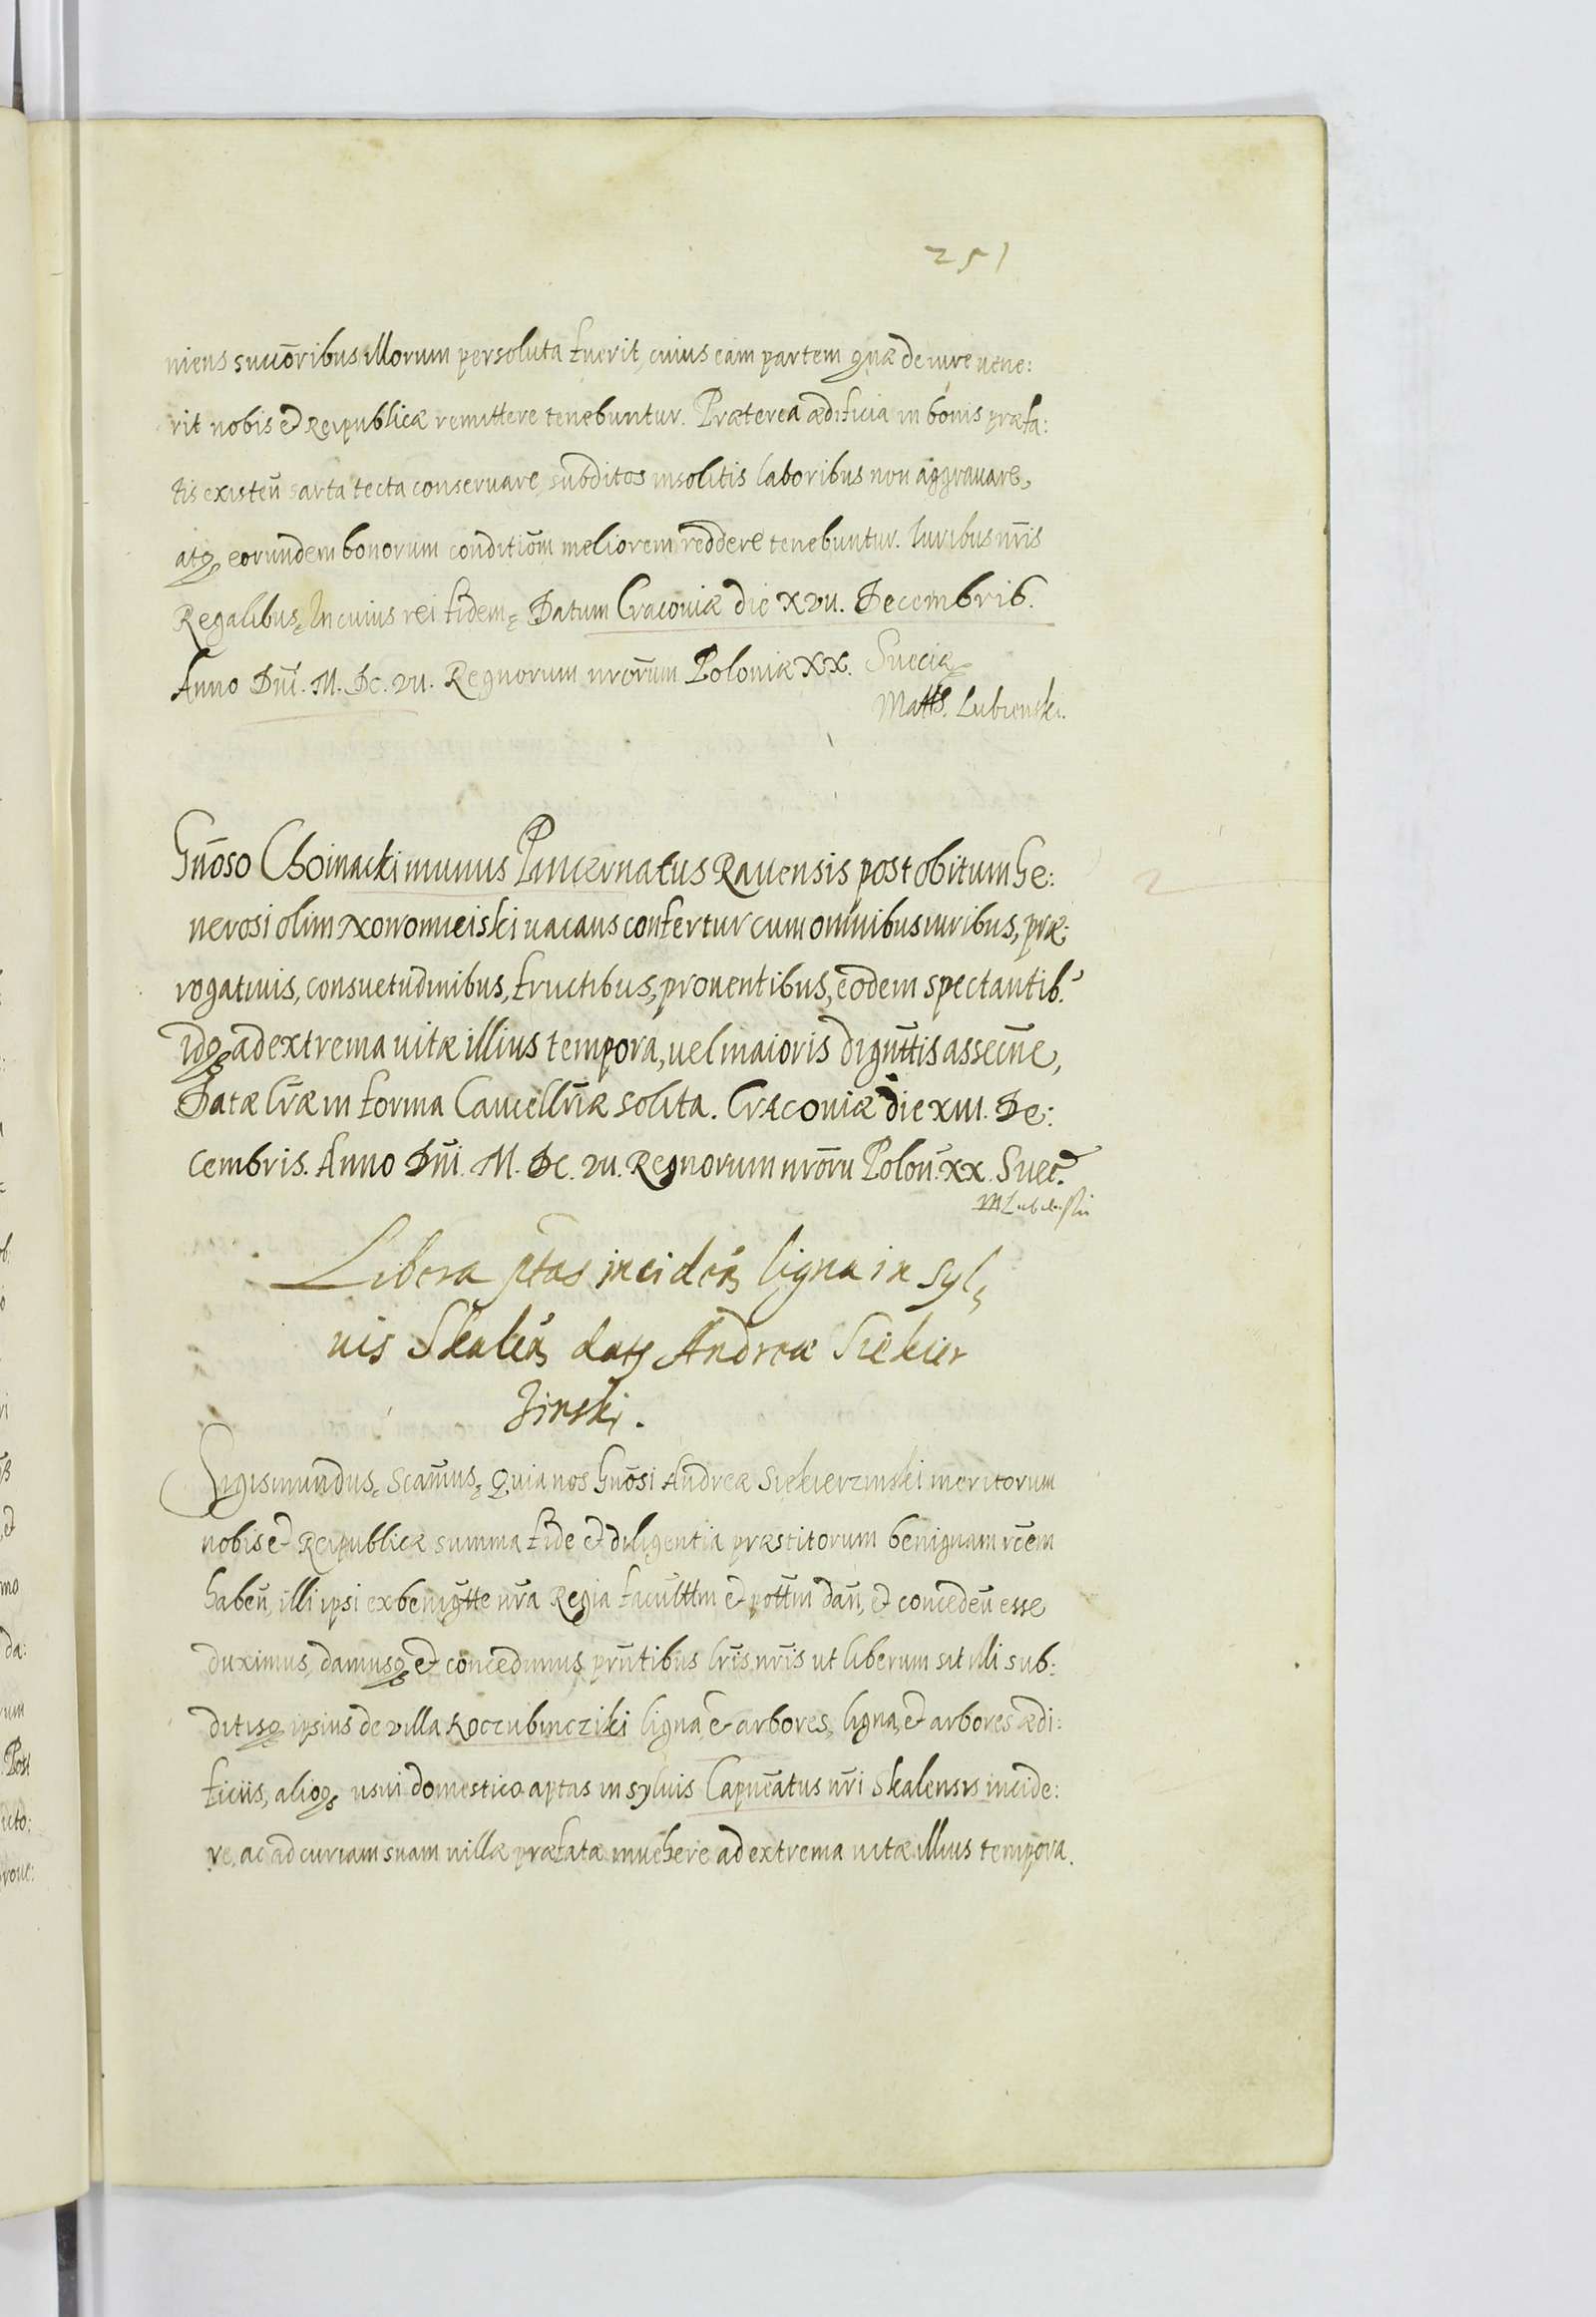 251
niens succōribus illorum persoluta fuerit, cuius eam partem quæ de iure vene:
rit nobis et Reipublicæ remittere tenebuntur. Præterea ædificia in bonis præfa:
tis existeñ sarta tecta conservare, subditos insolitis laboribus non aggravare,
atq3 eorundem bonorum conditiōm meliorem reddere tenebuntur. Iuribus nr̄is
Regalibus. In cuius rei fidem. Datum Cracoviæ die XVII. Decembris.
Anno Dn̄i. M. DC. VII. Regnorum nrōrum Poloniæ XX. Sueciæ
Matts. Lubienski.
Gn̄oso Choinacki munus Pincernatus Ravensis post obitum Ge:
nerosi olim Nowomieiski vacans confertur cum omnibus iuribus, præ:
rogativis, consuetudinibus, fructibus, proventibus, eodem spectantib9
idq3 ad extrema vitæ illius tempora, vel maioris dign̄ttis assecūne,
Datæ Lr̄æ in forma Cancellr̄iæ solita. Cracoviæ die XIII. De:
cembris. Anno Dn̄i. M. DC. VII. Regnorum nrōru Polon. XX. Suec.
M Lubienski
Libera ptas incideñ ligna in Syl,
vis Skaleñ datę Andreæ Siekier
zinski.
Sigismundus. Scamus. Quia nos Gn̄osi Andreæ Siekierzinski meritorum
nobis et Reipublicæ summa fide et diligentia præstitorum benignam rōem
habeñ, illi ipsi ex benigtte nr̄a Regia facultm̄ et pottm̄ dañ, et concedeñ esse
duximus, damusq3 et concedimus prn̄tibus lr̄is nr̄is ut liberum sit illi sub:
ditisq3 ipsius de villa Koczubincziki ligna, et arbores, ligna, et arbores ædi:
ficiis, alioq3 usui domestico aptas in sylvis Capn̄eatus nr̄i Skalensis incide:
re, ac ad curiam suam villæ præfatæ invehere ad extrema vitæ illius tempora.